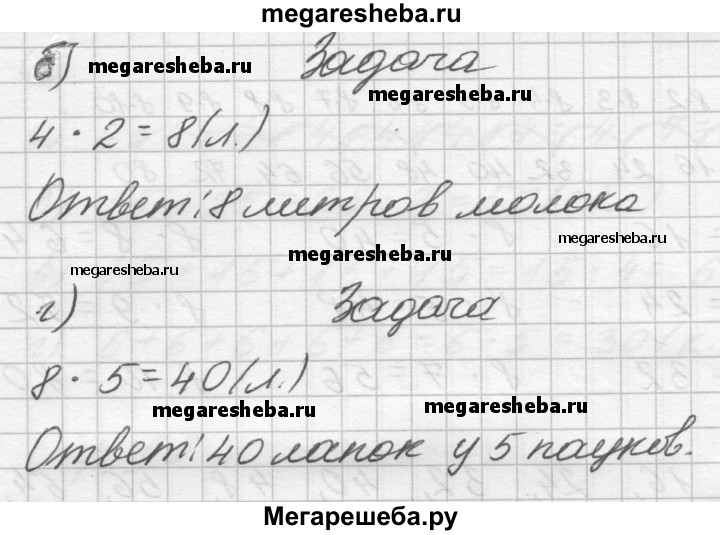 megaresheba.ru
б) megaresheba.ru Задача
megaresheba.ru
4 · 2 = 8(л.)
Ответ: 8 литров молока
megaresheba.ru
megaresheba.ru
megaresheba.ru
г) Задача
8 · 5 = 40(л.)
megaresheba.ru
megaresheba.ru
Ответ: 40 лапок у 5 пауков.
Мегарешеба.ру